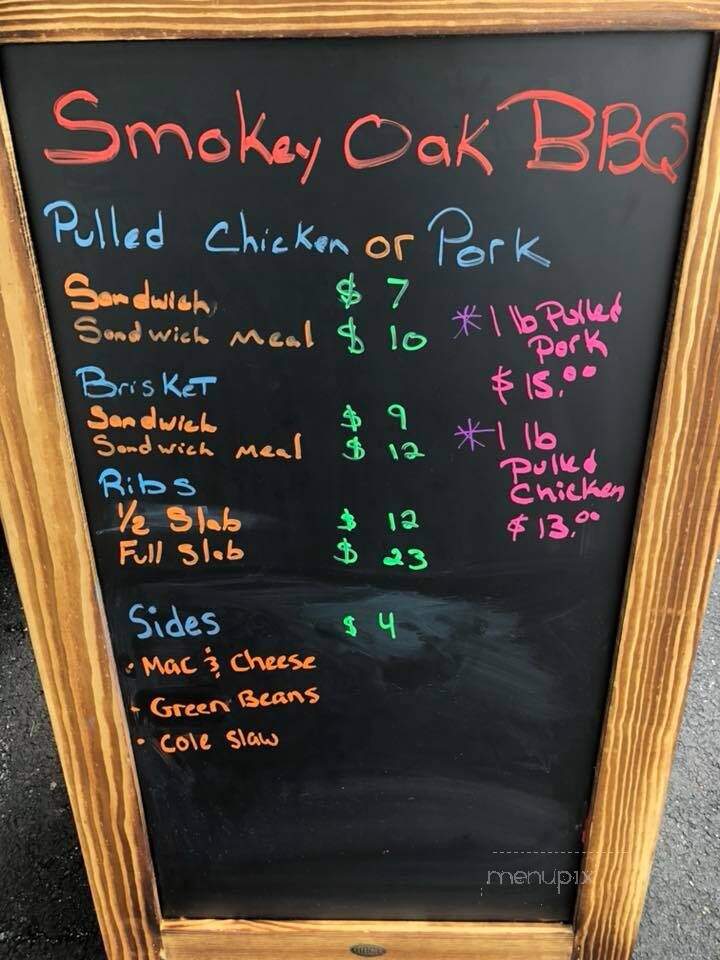 Smokey Oak BBQ
Pulled Chicken or Pork
Sandwich $ 7
Sandwich Meal $ 10
* 1 lb Pulled
Pork
$ 15.00
Brisket
Sandwich $ 9
Sandwich Meal $ 12
* 1 lb
Pulled
Chicken
$ 13.00
Ribs
1/2 Slab $ 12
Full Slab $ 23
Sides $ 4
· Mac & Cheese
- Green Beans
· Cole Slaw
menupix